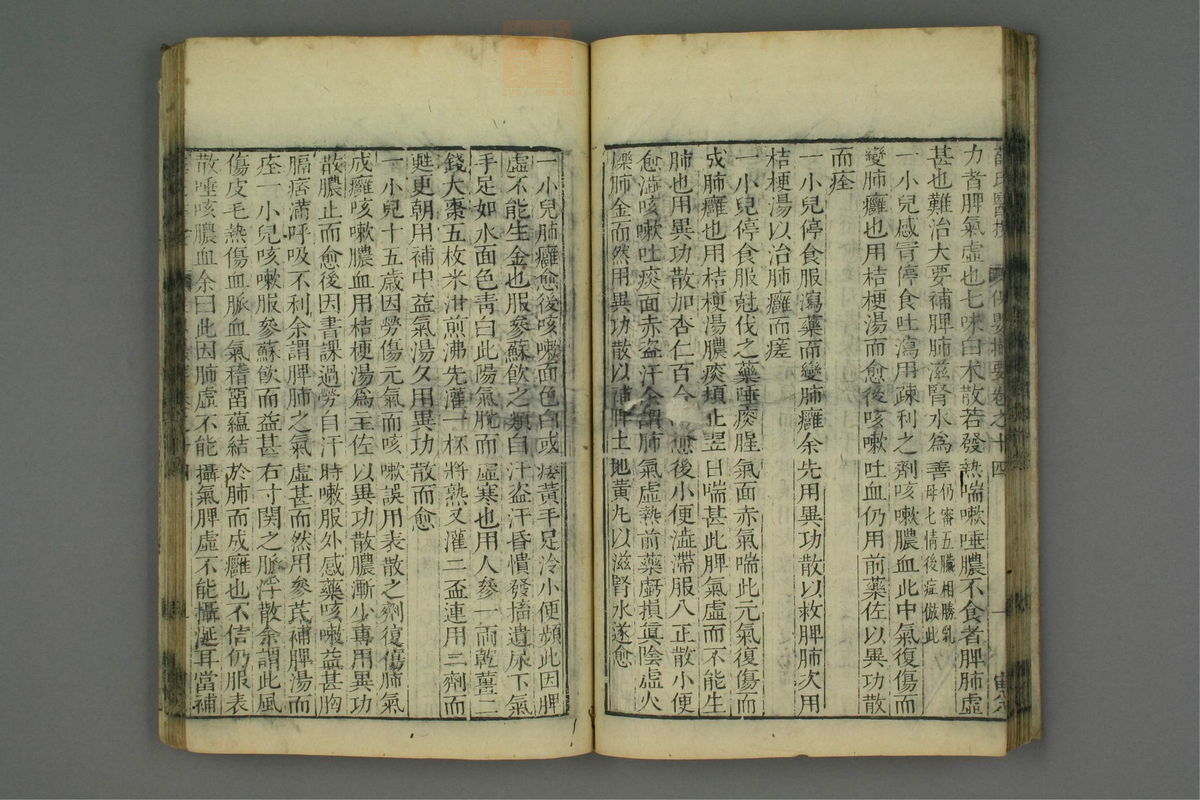 薛氏醫按 保嬰撮要卷之十四
力者脾氣虛也七味白朮散若發熱喘嗽唾膿不食者脾肺虛
甚也難治大要補脾肺滋腎水為善仍審五臟相勝乳
母七情後症倣此
一小兒感冒停食吐瀉用疎利之劑咳嗽膿血此中氣復傷而
變肺癰也用桔梗湯而愈後咳嗽吐血仍用前藥佐以異功散
而痊
一小兒停食服瀉藥而變肺癰余先用異功散以救脾肺次用
桔梗湯以治肺癰而瘥
一小兒停食服尅伐之藥唾痰腥氣面赤氣喘此元氣復傷而
成肺癰也用桔梗湯膿痰頓止翌日喘甚此脾氣虛而不能生
肺也用異功散加杏仁百合 愈後小便澁滯服八正散小便
愈澁咳嗽吐痰面赤盜汗余謂肺氣虛熱前藥虧損眞陰虛火
爍肺金而然用異功散以補脾土地黃丸以滋腎水遂愈
一小兒肺癰愈後咳嗽面色白或痿黃手足冷小便頻此因脾
虛不能生金也服參蘇飲之類自汗盜汗昏憒發搐遺尿下氣
手足如氷面色青白此陽氣脫而虛寒也用人參一兩乾薑二
錢大棗五枚米泔煎沸先灌一杯將熟又灌二盃連用三劑而
甦更朝用補中益氣湯夕用異功散而愈
一小兒十五歲因勞傷元氣而咳嗽誤用表散之劑復傷肺氣
成癰咳嗽膿血用桔梗湯為主佐以異功散膿漸少專用異功
散膿止而愈後因書課過勞自汗時嗽服外感藥咳嗽益甚胸
膈痞滿呼吸不利余謂脾肺之氣虛甚而然用參芪補脾湯而
痊一小兒咳嗽服參蘇飲而益甚右寸関之脈浮散余謂此風
傷皮毛熱傷血脈血氣稽畱蘊結於肺而成癰也不信仍服表
散唾咳膿血余曰此因肺虛不能攝氣脾虛不能攝涎耳當補